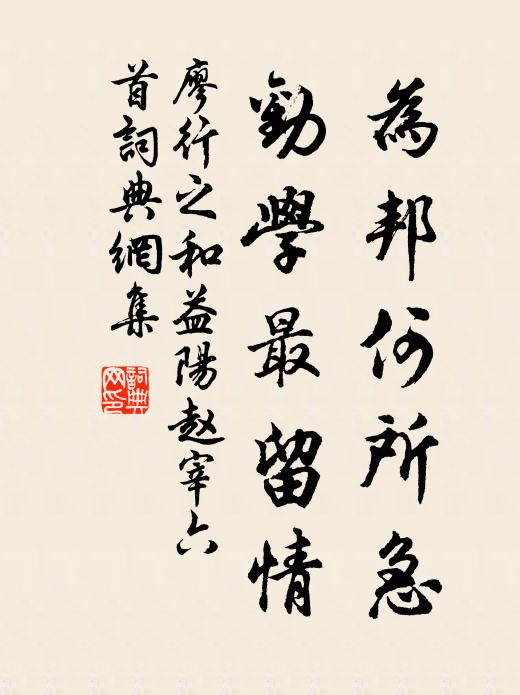 為邦何所急
勸學最留情
廖行之和益陽趙宰六
首詞典網集
詞典
网印